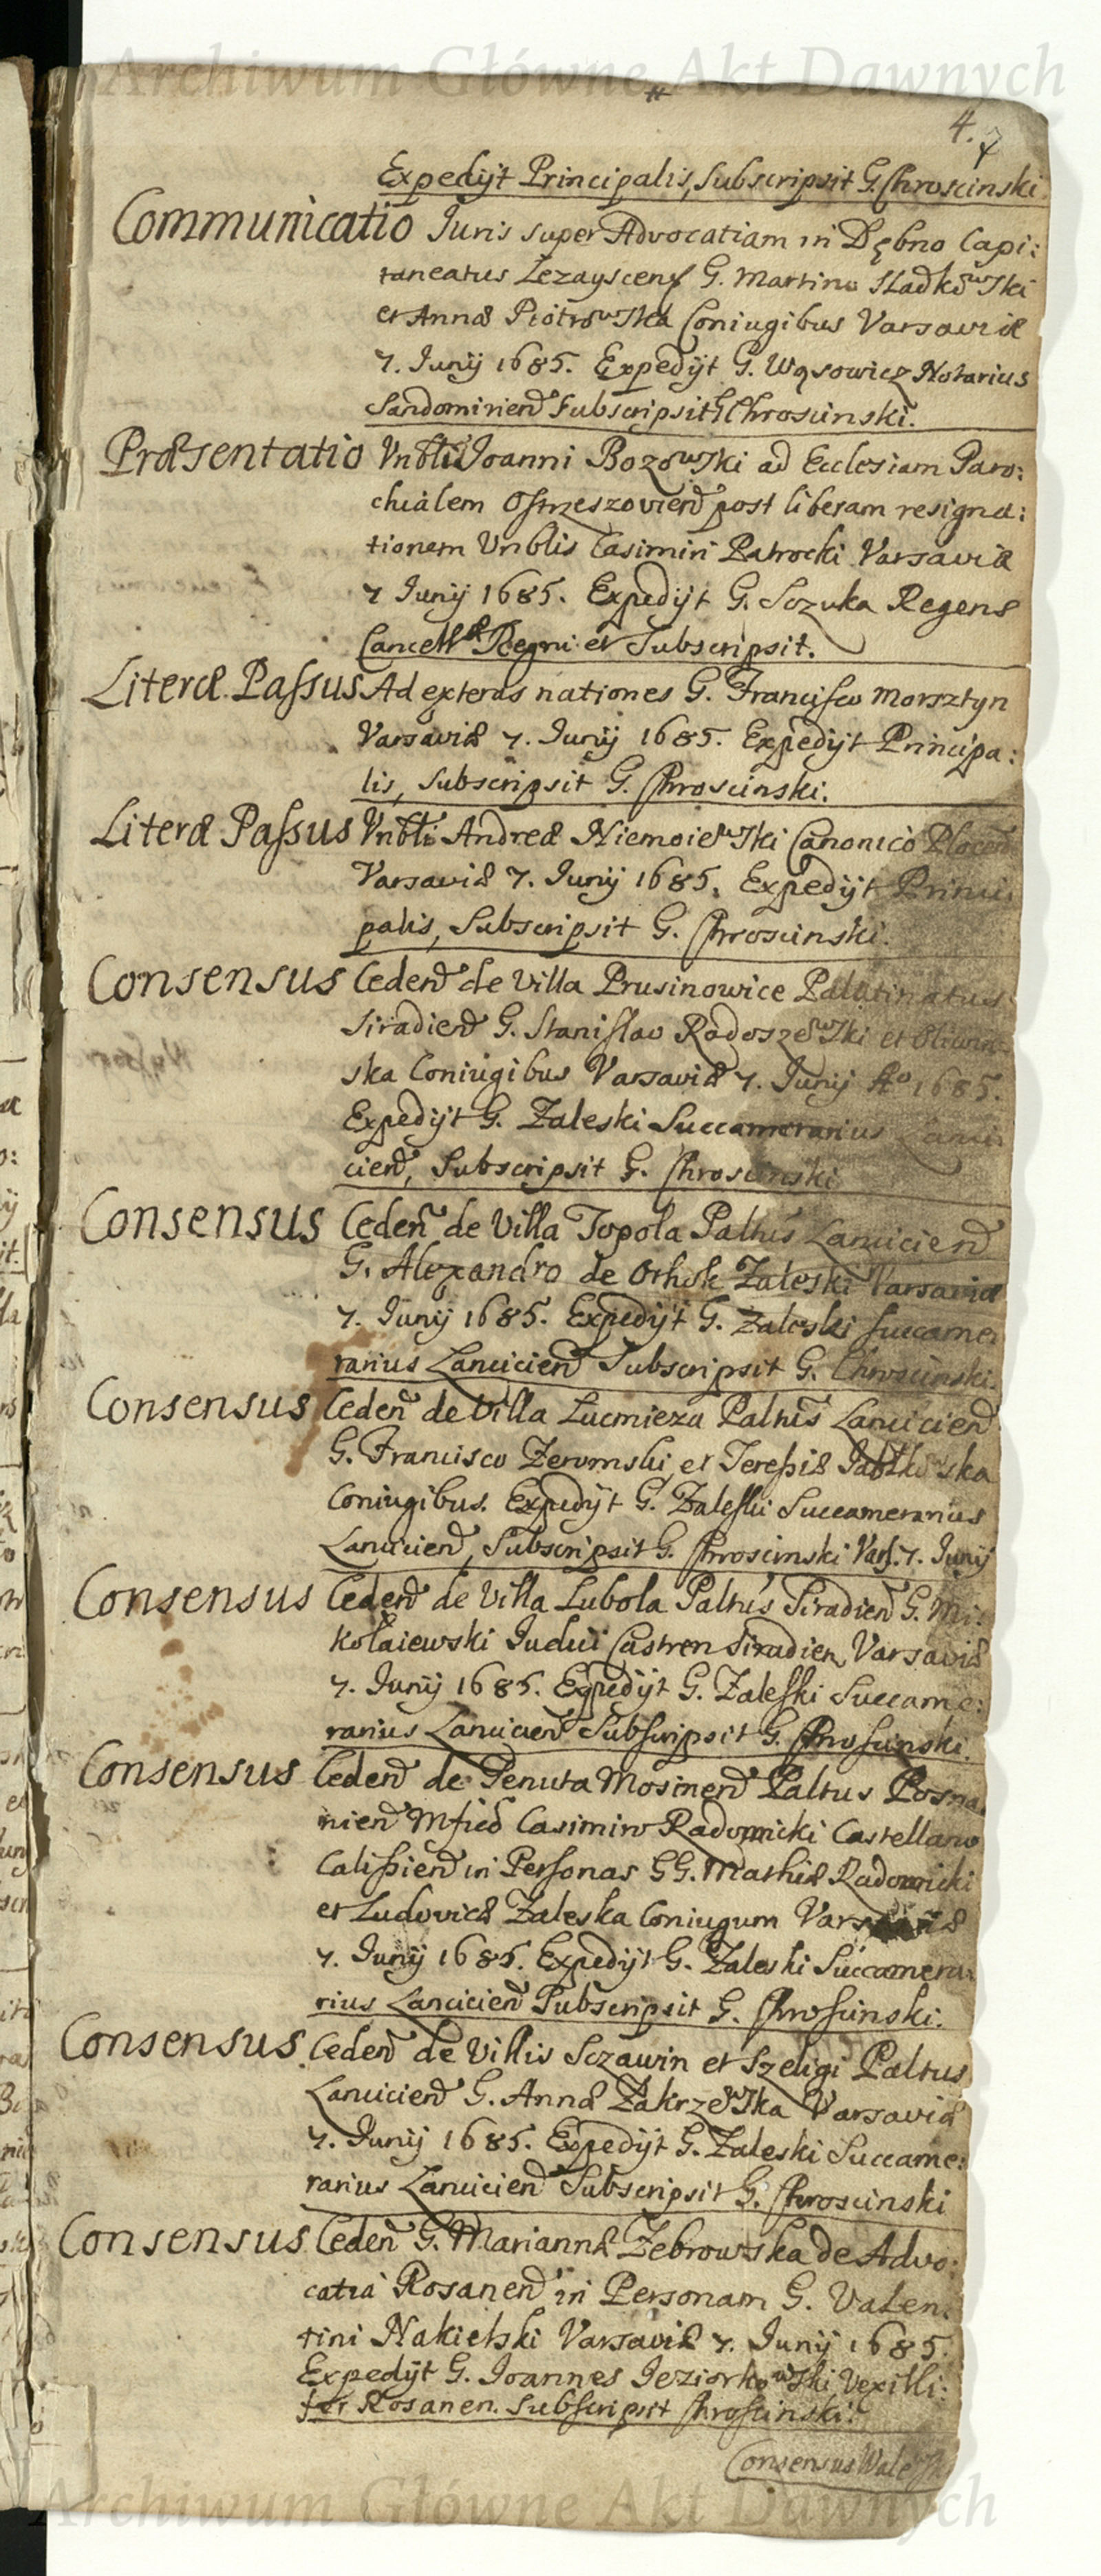 Archiwum Główne Akt Dawnych
4. 7
Expedijt Principalis, Subscripsit G. Chroscinski
Communicatio Juris super Advocatiam in Dębno Capi:
taneatus Lezayscens G. Martino Sładkowski
et Annæ Piotrowska Coniugibus Varsaviæ
7. Junij 1685. Expedijt G. Wąsowicz Notarius
Sandomirien Subscripsit G Chroscinski.
Præsentatio Vnbli Joanni Bozowski ad Ecclesiam Paro:
chialem Ostrzeszovien post liberam resigna:
tionem Vnblis Casimiri Patrocki Varsaviæ
7 Junij 1685. Expedijt G. Sczuka Regens
Cancellæ Regni et Subscripsit.
Literæ Passus Ad exteras nationes G. Francisco Morsztyn
Varsaviæ 7. Junij 1685. Expedijt Principa:
lis, Subscripsit G. Chroscinski.
Literæ Passus Vnbli Andreæ Niemoiewski Canonico Plocen
Varsaviæ 7. Junij 1685. Expedijt Princi:
palis, Subscripsit G. Chroscinski.
Consensus Ceden de Villa Prusinowice Palatinatus
Siradien G. Stanislao Radoszewski et
ska Coniugibus Varsaviæ 7. Junij Ao 1685.
Expedijt G. Zaleski Succamerarius Lanci:
cien, Subscripsit G. Chroscinski
Consensus Ceden de Villa Topola Paltus Lancicien
G. Alexandro de Othok Zaleski Varsaviæ
7. Junij 1685. Expedijt G. Zaleski Succame:
rarius Lancicien Subscripsit G. Chroscinski.
Consensus Ceden de Villa Lucmieza Paltus Lancicien
G. Francisco Zeromski et Teressiæ Jabłkowska
Coniugibus. Expedijt G. Zaleski Succamerarius
Lancicien, Subscripsit G. Chroscinski Vars. 7. Junij
Consensus Ceden de Villa Lubola Paltus Siradien G. Mi:
kołaiewski Judici Castren Siradien Varsaviæ
7. Junij 1685. Expedijt G. Zaleski Succame:
rarius Lancicien Subscripsit G. Chroscinski.
Consensus Ceden de Tenuta Mosinen Paltus Posna
nien Mfico Casimiro Radomicki Castellano
Calissien in Personas GG. Mathiæ Radomicki
et Ludovicæ Zaleska Coniugum Varsaviæ
7. Junij 1685. Expedijt G. Zaleski Succamera:
rius Lancicien Subscripsit G. Chroscinski.
Consensus Ceden de Villis Sczawin et Szeligi Paltus
Lancicien G. Annæ Zakrzewska Varsaviæ
7. Junij 1685. Expedijt G. Zaleski Succame:
rarius Lancicien Subscripsit G. Chroscinski
Consensus Ceden G. Mariannæ Zebrowska de Advo:
catia Rosanen in Personam G. Valen:
tini Nakielski Varsaviæ 7. Junij 1685.
Expedijt G. Joannes Jeziorkowski Vexilli:
fer Rosanen. Subscripsit Chroscinski.
Consensus
Archiwum Główne Akt Dawnych